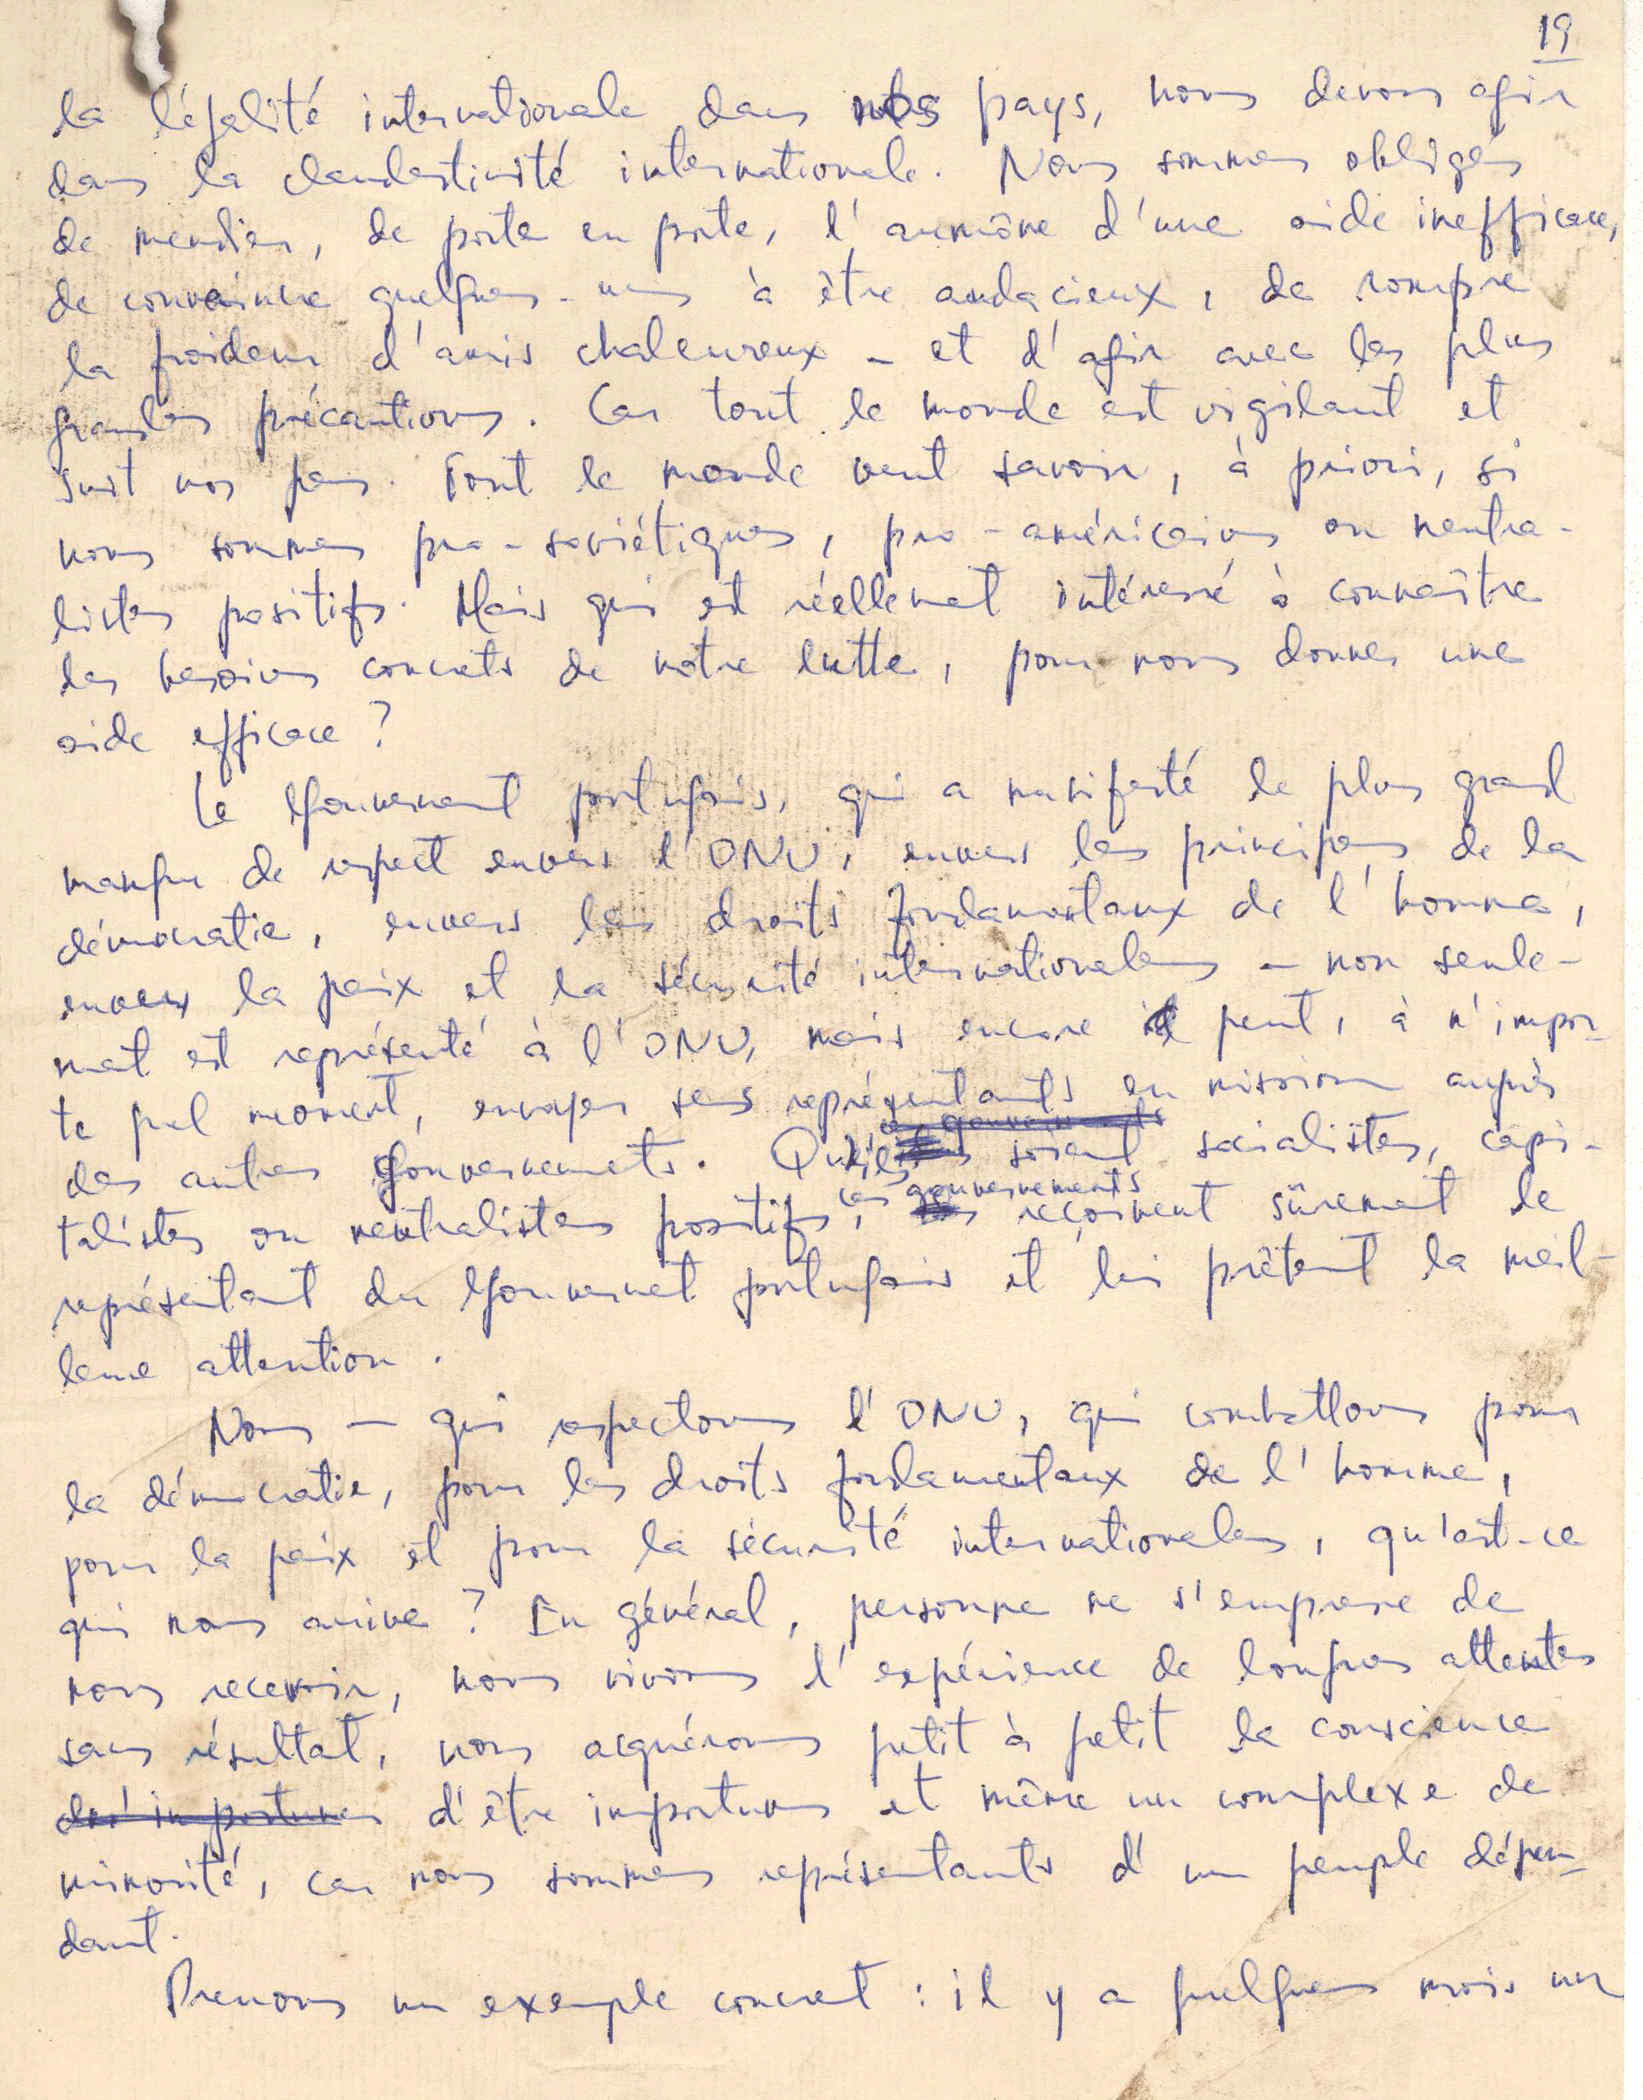 19
la légalité internationale dans nos pays, nous devons agir
dans la clandestinité internationale. Nous sommes obligés
de mendier, de porte en porte, l'aumône d'une aide inefficace,
de convaincre quelques-uns à être audacieux, de rompre
la froideur d'amis chaleureux - et d'agir avec les plus
grandes précautions. Car tout le monde est vigilant et
suit nos pas. Tout le monde veut savoir, à priori, si
nous sommes pro-soviétiques, pro-américains ou neutra-
listes positifs. Mais qui est réellement intéressé à connaître
les besoins concrets de notre lutte, pour nous donner une
aide efficace?
Le Gouvernement portugais, qui a manifesté le plus grand
manque de respect envers l'ONU, envers les principes de la
démocratie, envers les droits fondamentaux de l'homme,
envers la paix et la sécurité internationales - non seule-
ment est représenté à l'ONU, mais encore il peut, à n'impor-
te quel moment, envoyer ses représentants en mission auprès
des autres Gouvernements. Qu'ils soient socialistes, capi-
talistes ou neutralistes positifs, ces gouvernements reçoivent sûrement le
représentant du Gouvernement portugais et lui prêtent la meil-
leure attention.
Nous - qui respectons l'ONU, qui combattons pour
la démocratie, pour les droits fondamentaux de l'homme,
pour la paix et pour la sécurité internationales, qu'est-ce
qui nous arrive? En général, personne ne s'empresse de
nous recevoir, nous vivons l'expérience de longues attentes
sans résultat, nous acquérons petit à petit la conscience
d'être importuns et même un complexe de
minorité, car nous sommes représentants d'un peuple dépen-
dant.
Prenons un exemple concret : il y a quelques mois un